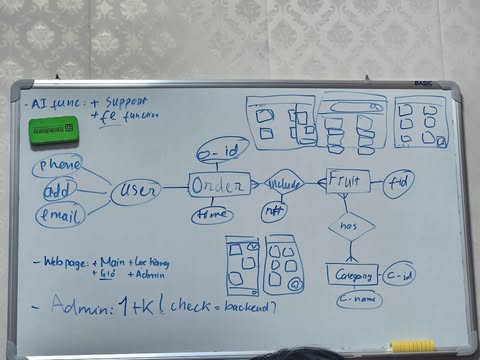 BASIC
- AI func: + Support
+ fe function
o-id
phone
add
email
User
Order
time
include
Fruit
f-id
has
Category
C-id
C-name
- Webpage: + Main
+ Giỏ + Admin
- Admin: 1+K ( check = backend?